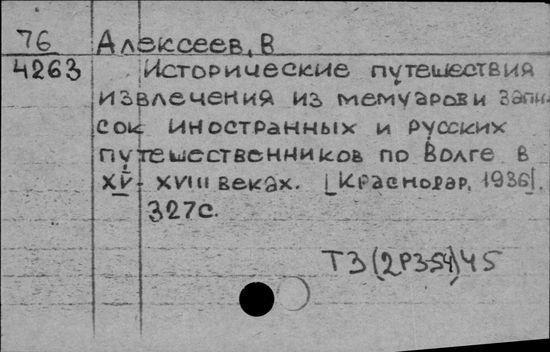 76 Алексеев, В
4263 Исторические путешествия
извлечения из мемуаров и запи-
сок иностранных и русских
путешественников по Волге в
XV-XVIII веках. [Краснодар, 1936].
327с.
Т3(2Р354)45